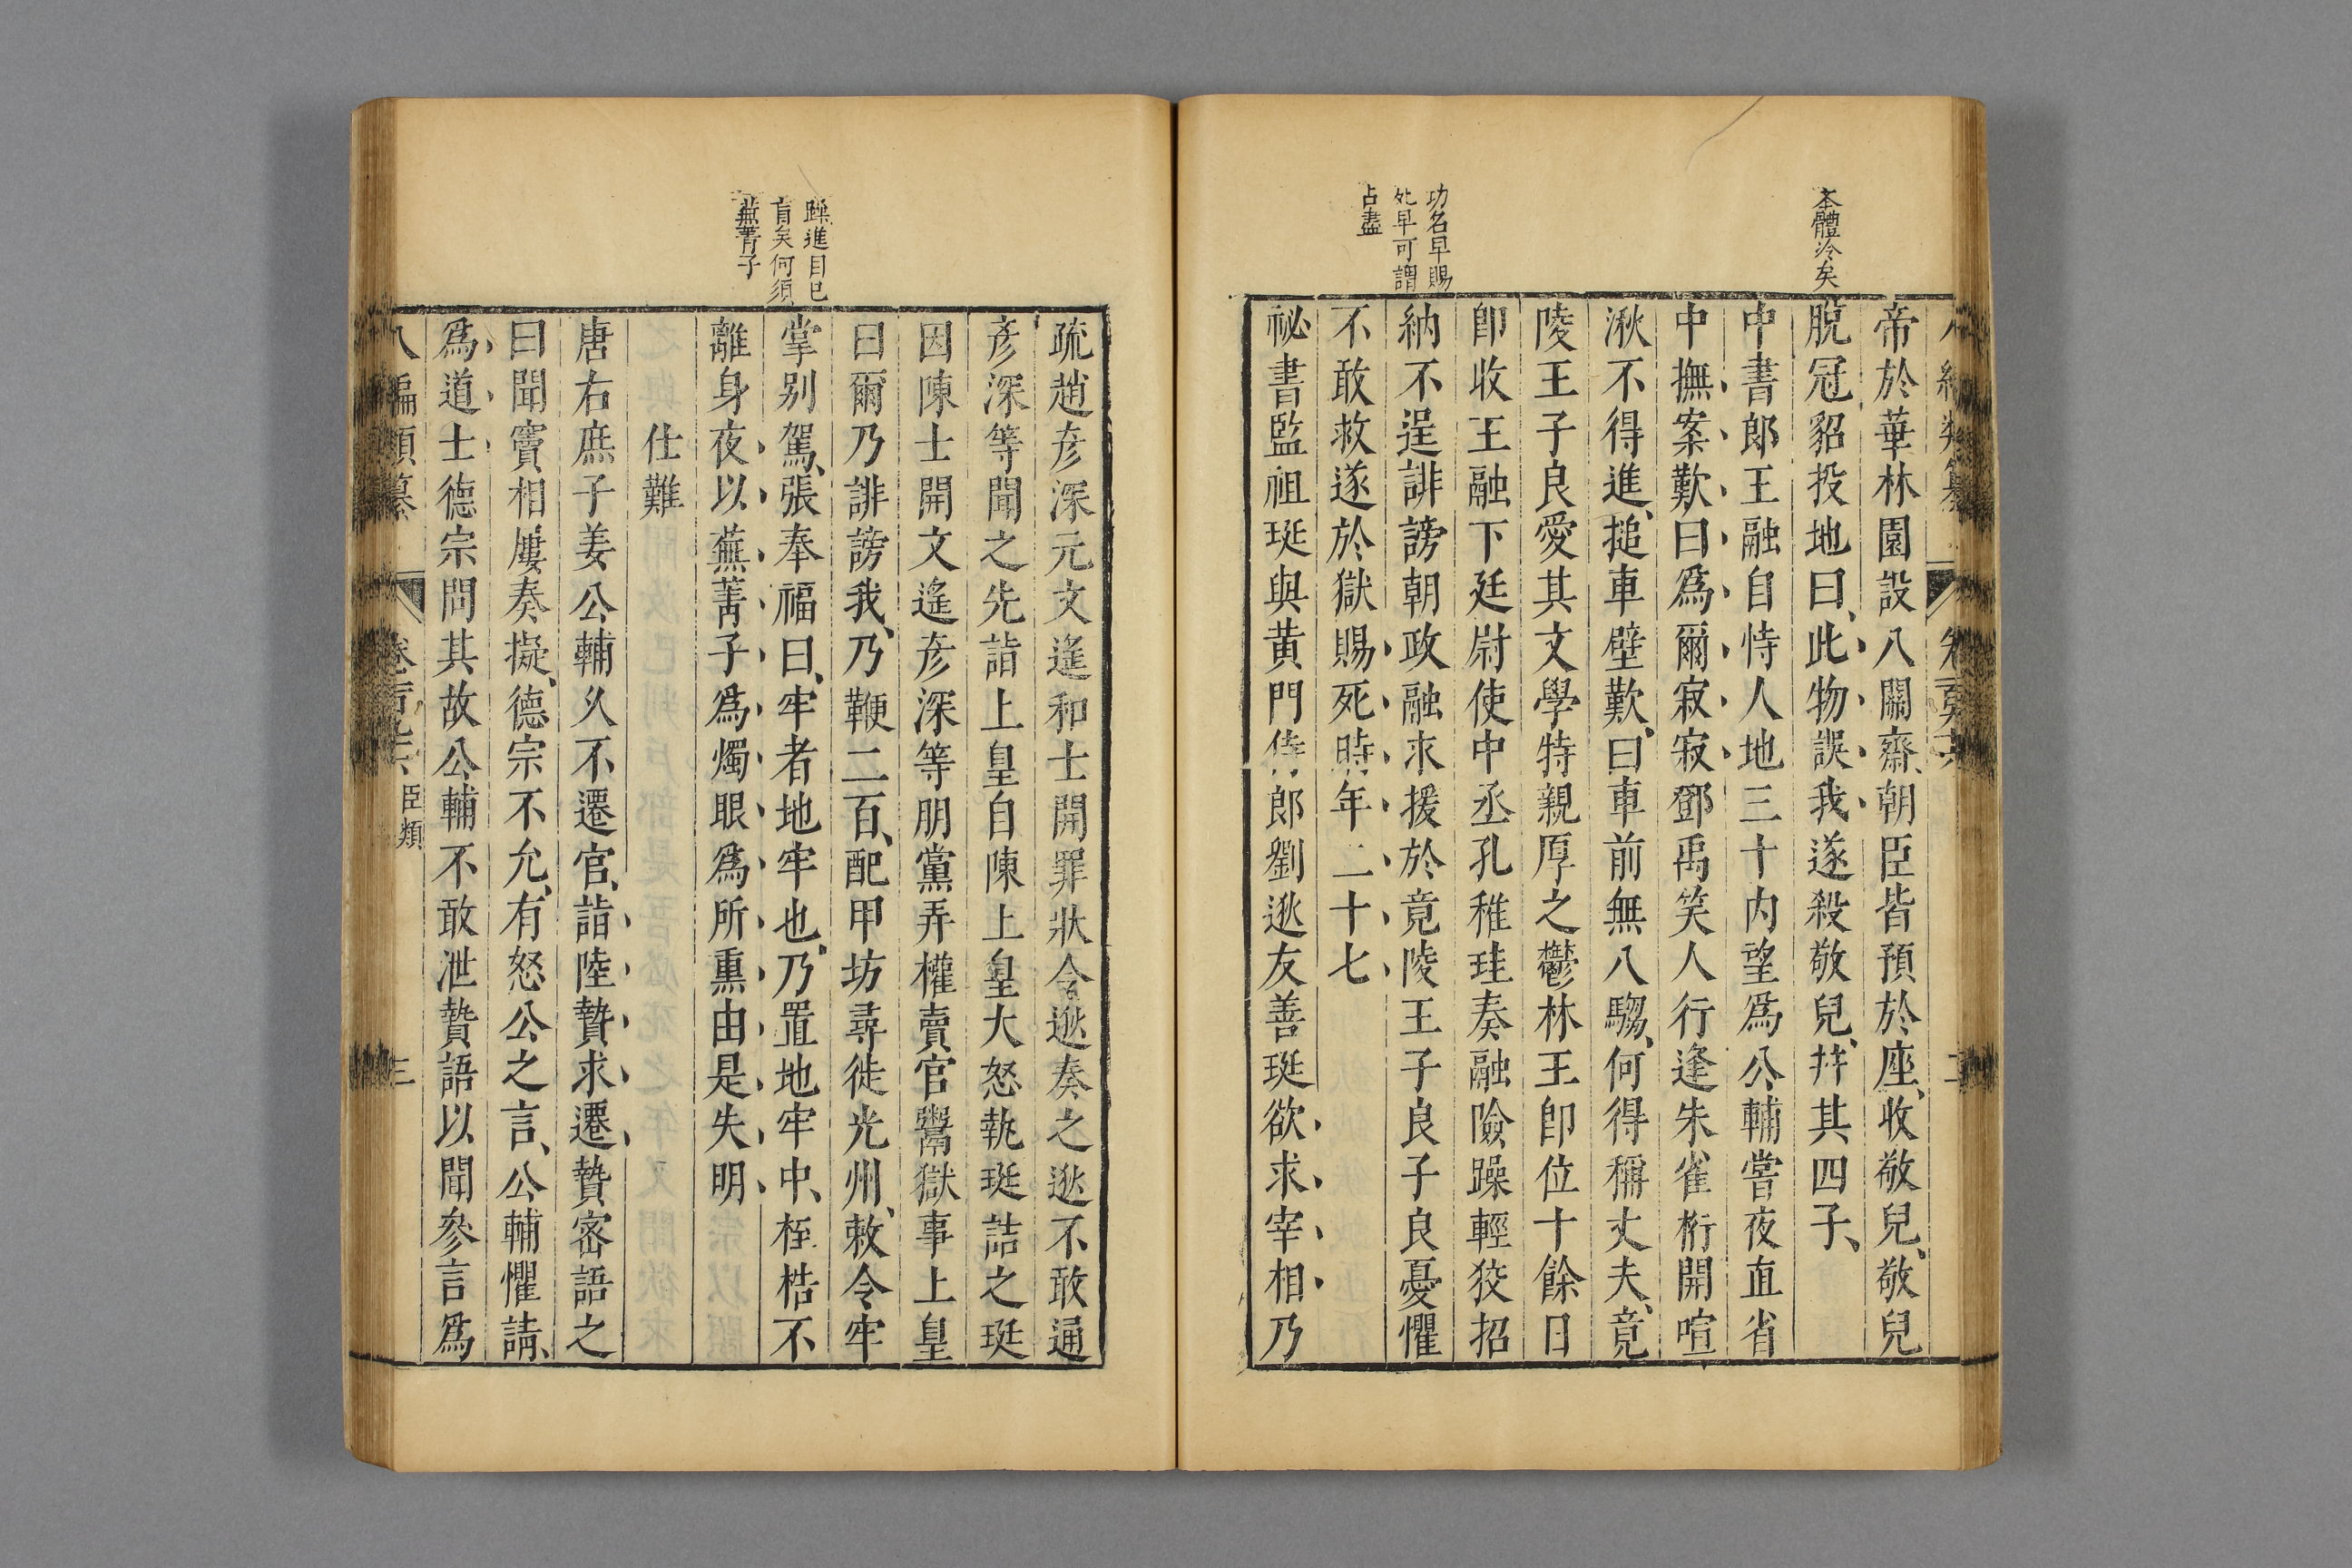 本體冷矣
功名早賜
死早可謂
占盡
帝於華林園設八關齋朝臣皆預於座收敬兒敬兒
脫冠貂投地曰此物誤我遂殺敬兒并其四子
中書郎王融自恃人地三十內望爲公輔嘗夜直省
中撫案歎曰爲爾寂寂鄧禹笑人行逢朱雀桁開喧
湫不得進搥車壁歎曰車前無八騶何得稱丈夫竟
陵王子良愛其文學特親厚之鬱林王即位十餘日
即收王融下廷尉使中丞孔稚珪奏融險躁輕狡招
納不逞誹謗朝政融求援於竟陵王子良子良憂懼
不敢救遂於獄賜死時年二十七
祕書監祖珽與黃門侍郎劉逖友善珽欲求宰相乃
躁進目已
盲矣何須
蕪菁子
疏趙彥深元文遙和士開罪狀令逖奏之逖不敢通
彥深等聞之先詣上皇自陳上皇大怒執珽詰之珽
因陳士開文遙彥深等朋黨弄權賣官鬻獄事上皇
曰爾乃誹謗我乃鞭二百配甲坊尋徙光州敕令牢
掌別駕張奉福曰牢者地牢也乃置地牢中桎梏不
離身夜以蕪菁子爲燭眼爲所熏由是失明
仕難
唐右庶子姜公輔久不遷官詣陸贄求遷贄密語之
曰聞竇相屢奏擬德宗不允有怒公之言公輔懼請
爲道士德宗問其故公輔不敢泄贄語以聞參言爲
八編類纂
臣類
三